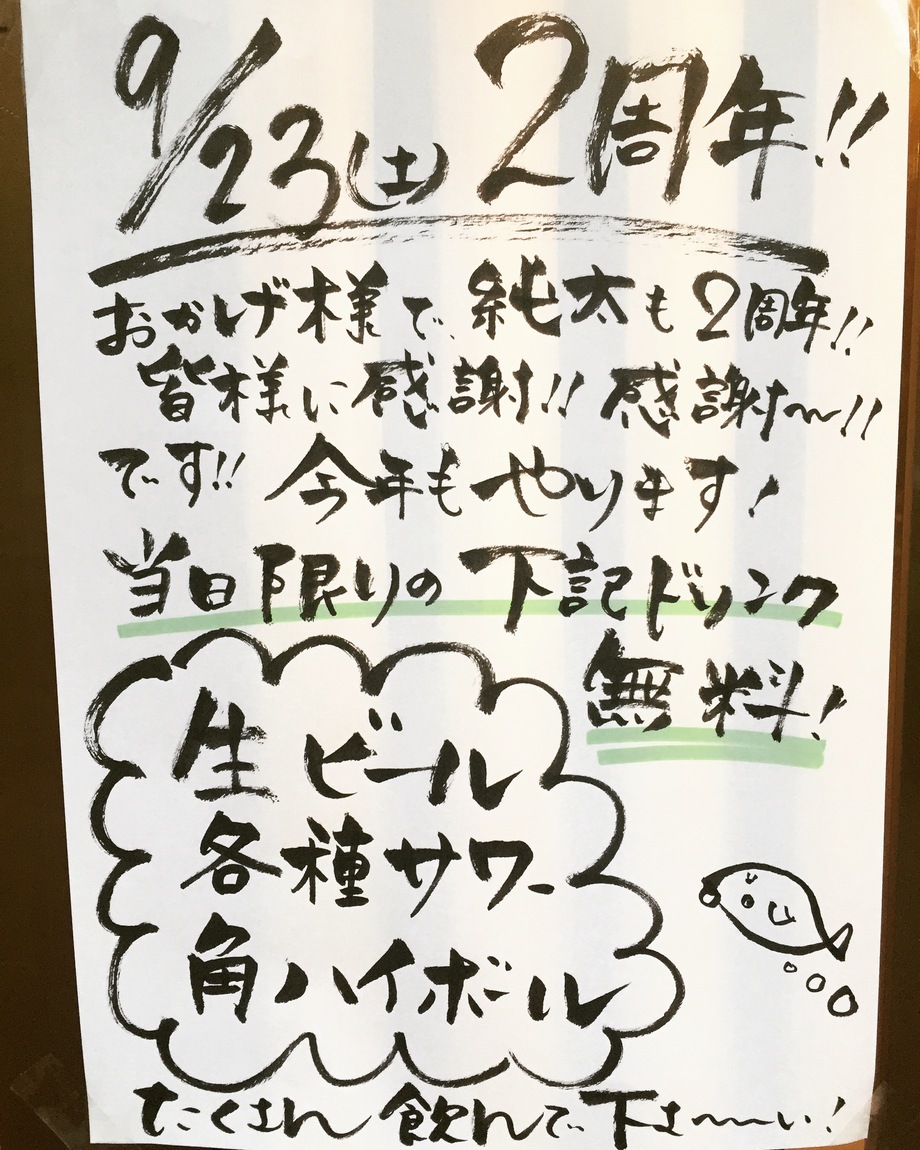 9/23(土) 2周年!!
おかげ様で、純太も2周年!!
皆様に感謝!! 感謝〜!!
です!! 今年もやります!
当日限りの下記ドリンク
無料!
生ビール
各種サワー
角ハイボール
たくさん飲んで下さ〜〜い!